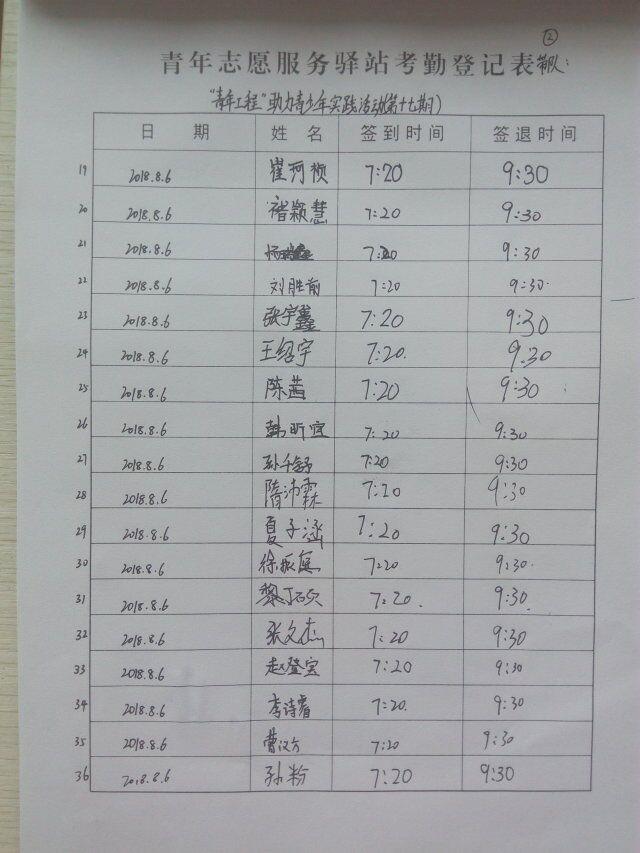 ②
青年志愿服务驿站考勤登记表
"青年工程"助力青少年实践活动(第十七期)
日 期 姓 名 签到时间 签退时间
19 2018.8.6 崔珂祯 7:20 9:30
20 2018.8.6 褚颖慧 7:20 9:30
21 2018.8.6 7:20 9:30
22 2018.8.6 刘胜前 7:20 9:30
23 2018.8.6 张宇鑫 7:20 9:30
24 2018.8.6 王绍宇 7:20 9:30
25 2018.8.6 陈茜 7:20 9:30
26 2018.8.6 韩昕宜 7:20 9:30
27 2018.8.6 孙千舒 7:20 9:30
28 2018.8.6 隋沛霖 7:20 9:30
29 2018.8.6 夏子涵 7:20 9:30
30 2018.8.6 徐振庭 7:20 9:30
31 2018.8.6 7:20 9:30
32 2018.8.6 张文杰 7:20 9:30
33 2018.8.6 赵登宝 7:20 9:30
34 2018.8.6 李诗睿 7:20 9:30
35 2018.8.6 曹汉方 7:20 9:30
36 2018.8.6 孙粉 7:20 9:30